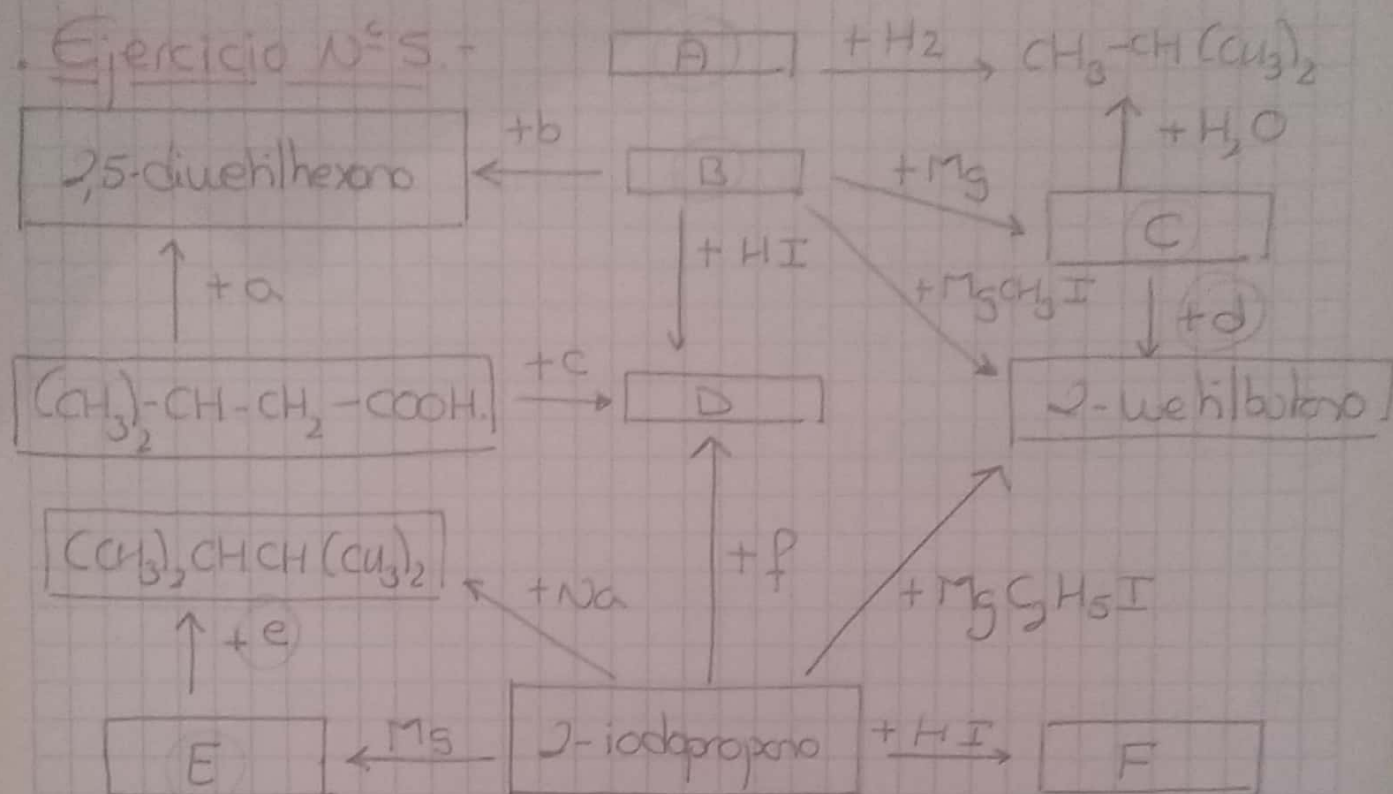 Ejercicio Nº 5.-
A + H2 CH3-CH(CH3)2
+b + H2O
2,5-dimetilhexano B + Mg
C
+ a + HI + MgCH3I + d
(CH3)2-CH-CH2-COOH. + c D 2-metilbutano
(CH3)2CHCH(CH3)2 + Na + f + MgC2H5I
+ e
E Mg 2-iodopropano + HI F